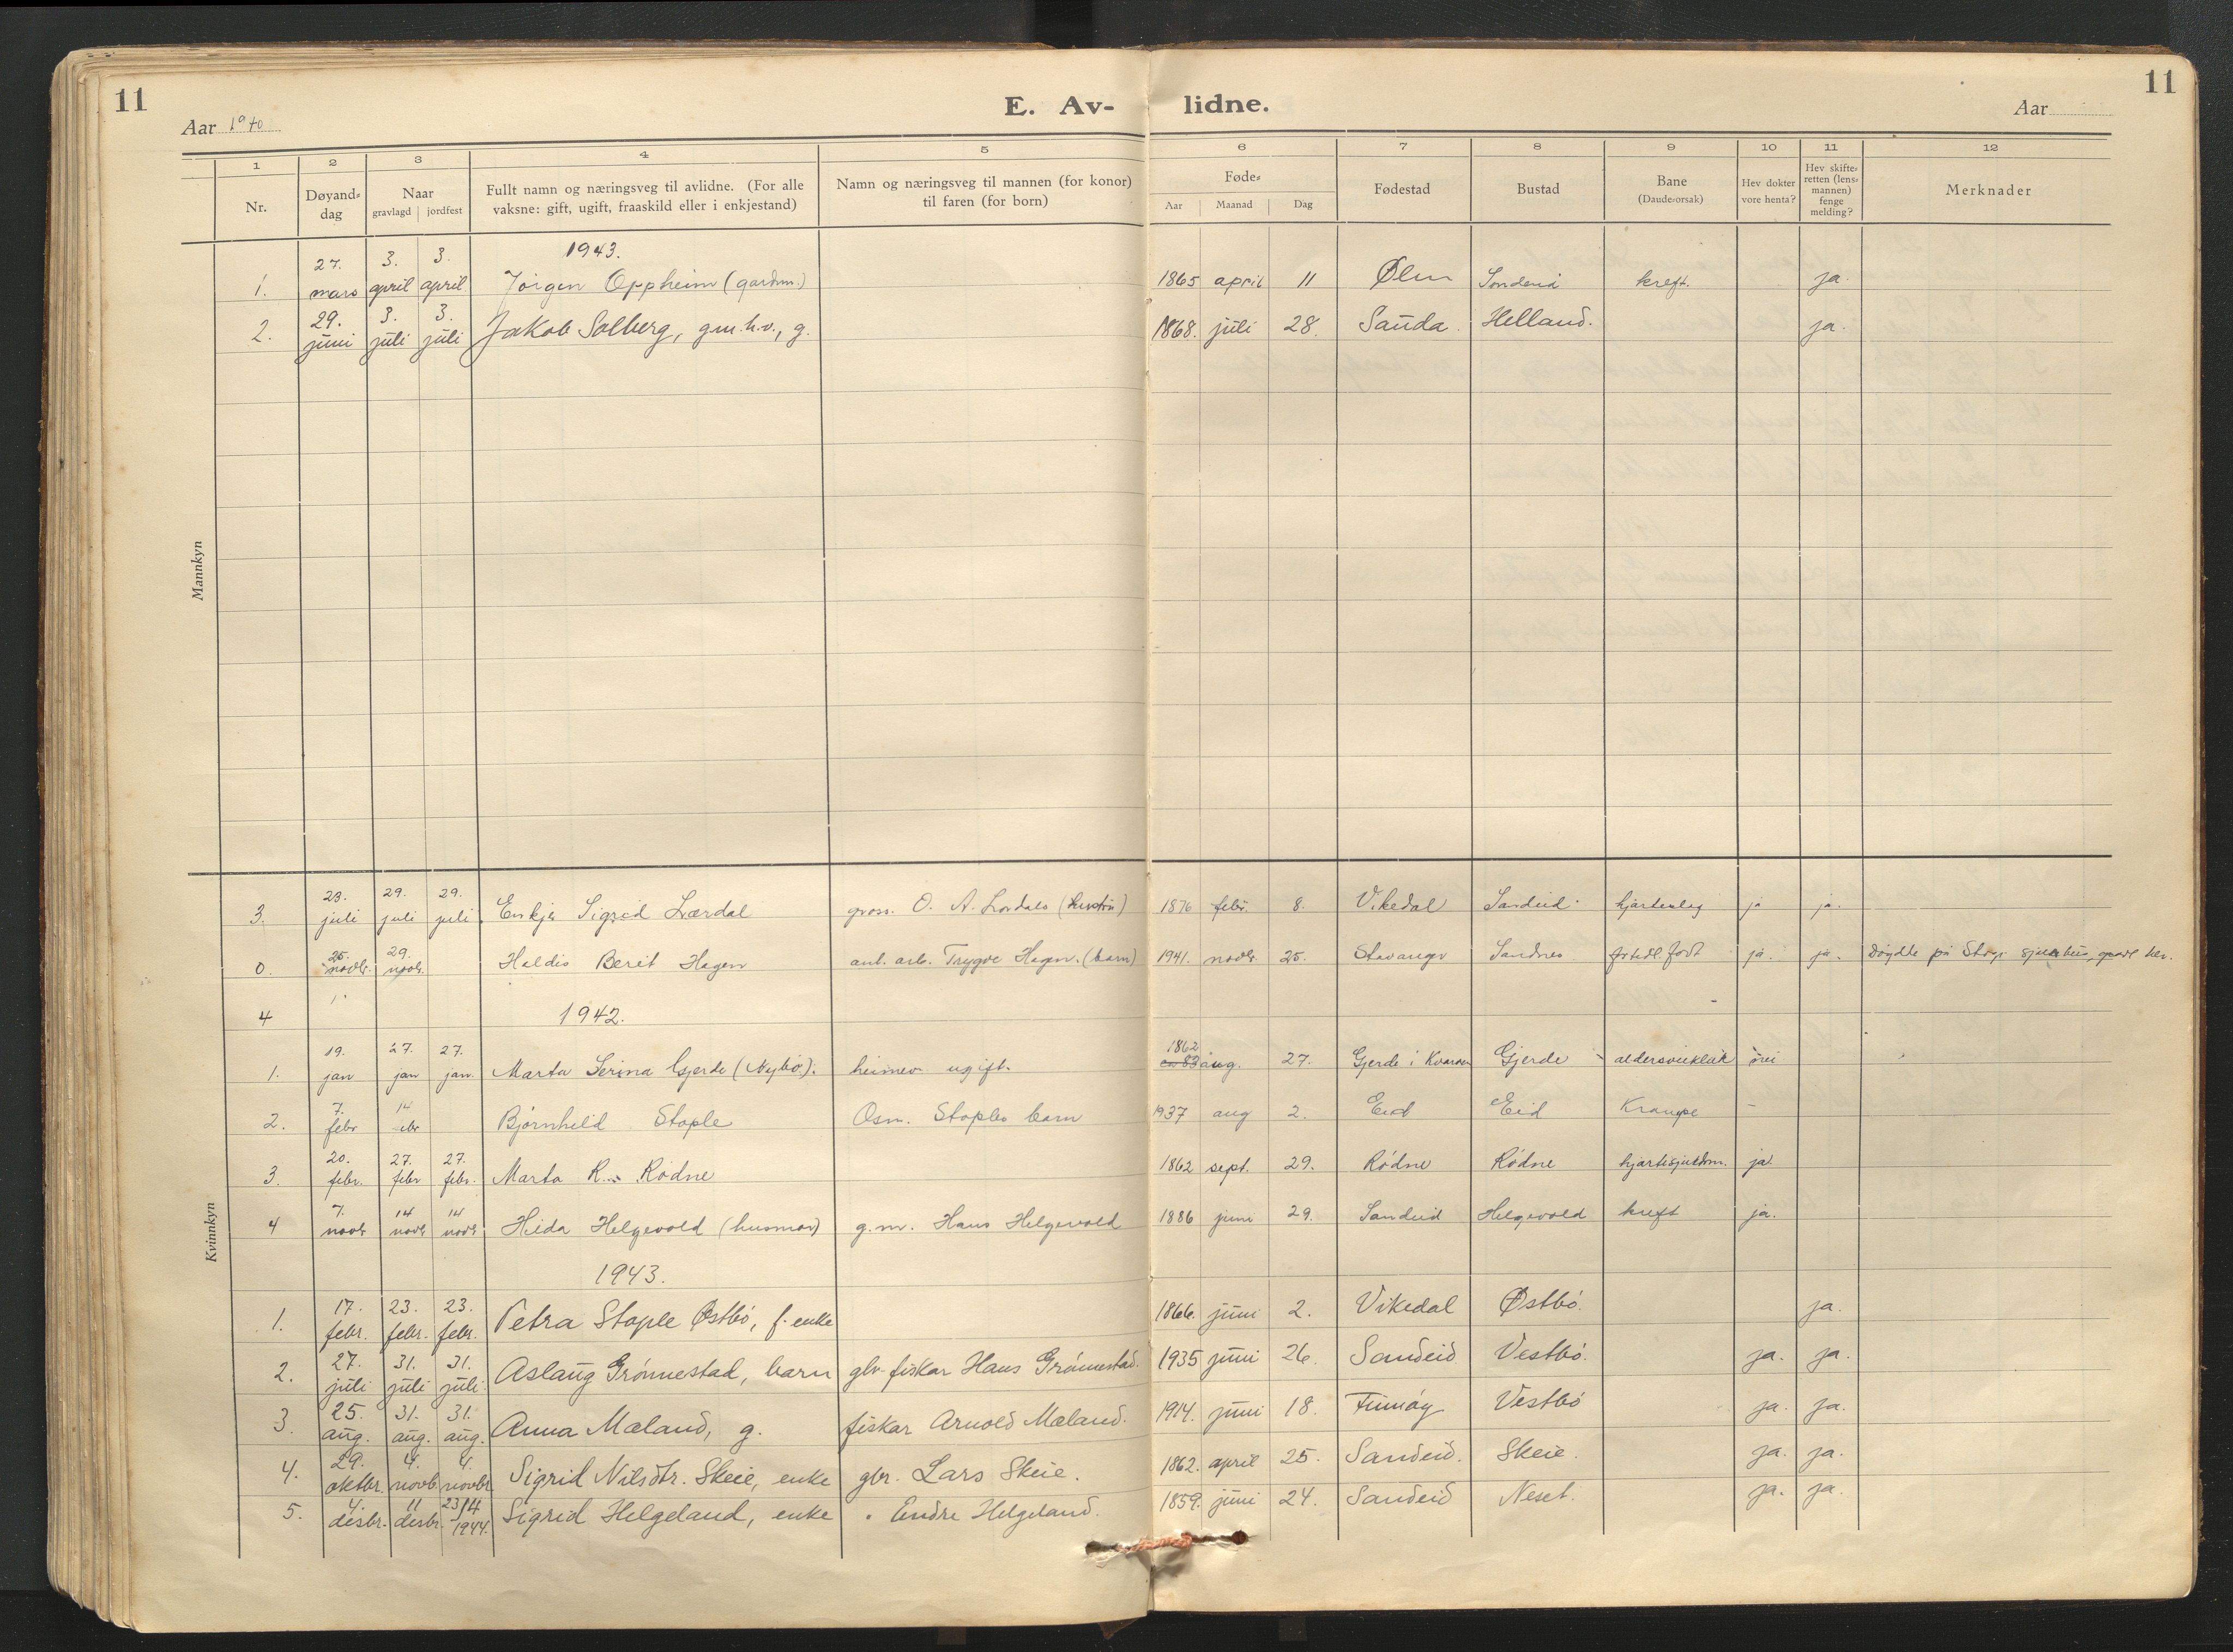 11
11
E. Av- lidne.
Aar 1940
Aar
1 2 3 4 5 6 7 8 9 10 11 12
Nr.
Døyand-
dag
Naar
gravlagd | jordfest
Fullt namn og næringsveg til avlidne. (For alle
vaksne: gift, ugift, fraaskild eller i enkjestand)
Namn og næringsveg til mannen (for konor)
til faren (for born)
Føde-
Aar Maanad Dag
Fødestad
Bustad
Bane
(Daude-orsak)
Hev dokter
vore henta?
Hev skifte-
retten (lens-
mannen)
fenge
melding?
Merknader
Mannkyn
1943.
27. 3. 3.
1. mars april april Jørgen Oppheim (gardm.) 1865 april 11 Ølen Sandeid kreft. ja.
29. 3. 3.
2. juni juli juli Jakob Solberg, gm. h.v., g. 1868. juli 28. Sauda. Helland. ja.
Kvinnkyn
23. 29. 29.
3. juli juli juli Enkje Sigrid Lærdal gross. O. A. Lærdals 1876 febr. 8. Vikedal Sandeid ja ja.
25. 29.
0. novbr. novbr. Haldis Berit Hagen anl. arb. Trygve Hagen. (barn) 1941. novbr. 25. Stavanger Sandnes født ja. ja. Døydde på Stvgr. sjukehus, gravl. her.
4 1942.
19. 27. 27. 1862
1. jan jan jan. Marta Serina Gjerde (Nybø). heimev. ugift. aug. 27. Gjerde i Gjerde aldersveikleik nei
7. 14
2. febr Bjørnhild Stople Osm. Stoples barn 1937 aug 2. Eid Eid Krampe -
20. 27. 27.
3. febr. febr febr. Marta R. Rødne 1862 sept. 29. Rødne Rødne hjartesjukdom. ja.
7. 14 14
4 novbr novbr novbr. Hilda Helgevold (husmor) g.m. Hans Helgevold 1886 juni 29. Sandeid Helgevold kreft ja.
1943.
17. 23. 23.
1. febr. febr. febr. Petra Stople Østbø, f. enke 1866. juni 2. Vikedal Østbø. ja.
27. 31. 31.
2. juli juli juli. Aslaug Grønnestad, barn gbr. fiskar Hans Grønnestad. 1935 juni 26. Sandeid Vestbø. ja. ja.
25. 31. 31.
3. aug. aug. aug. Anna Mæland, g. fiskar Arnold Mæland. 1914. juni 18. Finnøy Vestbø ja. ja.
29. 4. 4.
4. oktbr. novbr novbr Sigrid Nilsdtr. Skeie, enke gbr. Lars Skeie. 1862. april 25. Sandeid. Skeie. ja. ja.
4. 11 23/4
5. desbr. desbr. 1944. Sigrid Helgeland, enke " Endre Helgeland. 1859. juni 24. Sandeid Neset. ja. ja.